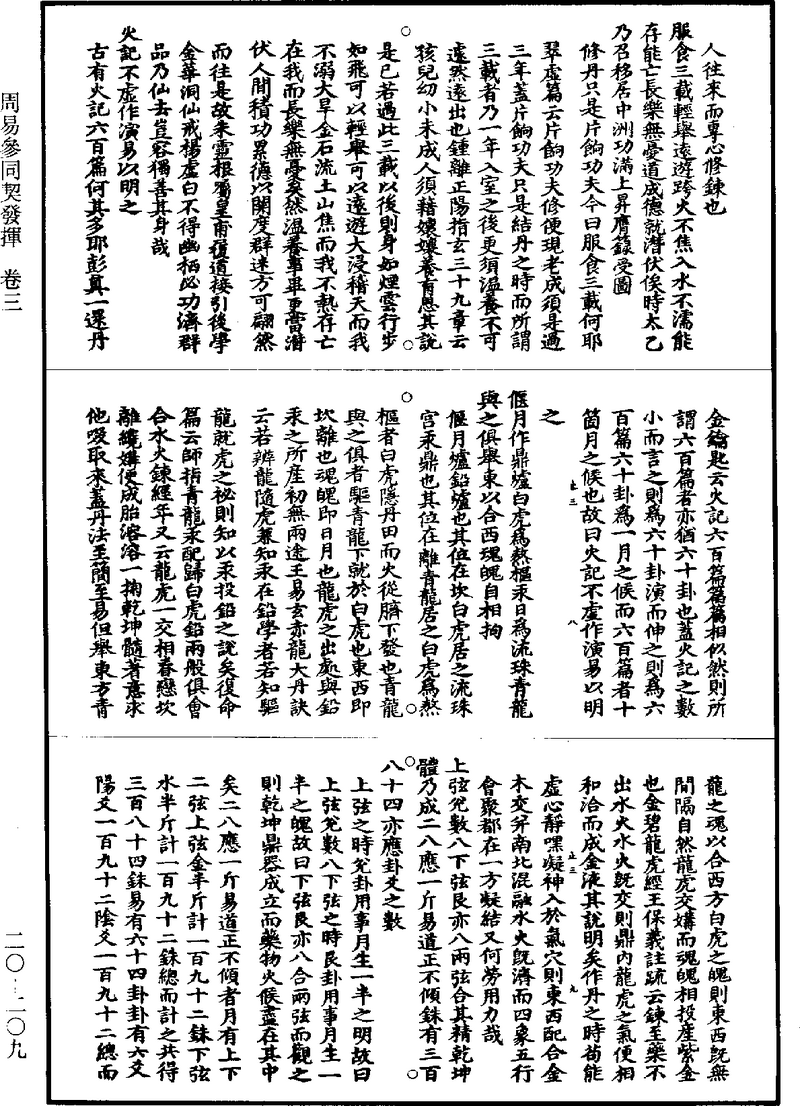 人往來而專心修鍊也
服食三載輕舉遠遊跨火不焦入水不濡能
存能亡長樂無憂道成德就潛伏俟時太乙
乃召移居中洲功滿上昇膺籙受圖
修丹只是片餉功夫今曰服食三載何耶
翠虛篇云片餉功夫修便現老成須是過
三年蓋片餉功夫只是結丹之時而所謂
三載者乃一年入室之後更須溫養不可
遽然遠出也鍾離正陽指玄三十九章云
孩兒幼小未成人須藉孃孃養育恩其說
是已若過此三載以後則身如煙雲行步
如飛可以輕舉可以遠遊大浸稽天而我
不溺大旱金石流土山焦而我不熱存亡
在我而長樂無憂矣然溫養事畢更當潛
伏人間積功累德以開度群迷方可翩然
而往是故朱靈根囑皇甫履道接引後學
金華洞仙戒楊虛白不得幽栖必功濟群
品乃仙去豈容獨善其身哉
火記不虛作演易以明之
古有火記六百篇何其多耶彭真一還丹
金鑰匙云火記六百篇篇篇相似然則所
謂六百篇者亦猶六十卦也蓋火記之數
小而言之則為六十卦演而伸之則為六
百篇六十卦為一月之候而六百篇者十
箇月之候也故曰火記不虛作演易以明
之
偃月作鼎爐白虎為熬樞汞日為流珠青龍
與之俱舉東以合西魂魄自相拘
偃月爐鉛爐也其位在坎白虎居之流珠
宮汞鼎也其位在離青龍居之白虎為熬
樞者白虎隱丹田而火從臍下發也青龍
與之俱者驅青龍下就於白虎也東西即
坎離也魂魄即日月也龍虎之出處與鉛
汞之所產初無兩途王易玄亦龍大丹訣
云若辨龍隨虎兼知汞在鉛學者若知驅
龍就虎之祕則知以汞投鉛之說矣復命
篇云師指青龍汞配歸白虎鉛兩般俱會
合水火鍊經年又云龍虎一交相眷戀坎
離纔媾便成胎溶溶一掬乾坤髓著意求
他吸取來蓋丹法至簡至易但舉東方青
龍之魂以合西方白虎之魄則東西既無
間隔自然龍虎交媾而魂魄相投產紫金
也金碧龍虎經王保義註疏云鍊至藥不
出水火水火既交則鼎內龍虎之氣便相
和洽而成金液其說明矣作丹之時苟能
虛心靜嘿凝神入於氣穴則東西配合金
木交并南北混融水火既濟而四象五行
會聚都在一方凝結又何勞用力哉
上弦兌數八下弦艮亦八兩弦合其精乾坤
體乃成二八應一斤易道正不傾銖有三百
八十四亦應卦爻之數
上弦之時兌卦用事月生一半之明故曰
上弦兌數八下弦之時艮卦用事月生一
半之魄故曰下弦艮亦八合兩弦而觀之
則乾坤鼎器成立而藥物火候盡在其中
矣二八應一斤易道正不傾者月有上下
二弦上弦金半斤計一百九十二銖下弦
水半斤計一百九十二銖總而計之共得
三百八十四銖易有六十四卦卦有六爻
陽爻一百九十二陰爻一百九十二總而
周易參同契發揮 卷三
二〇-二〇九